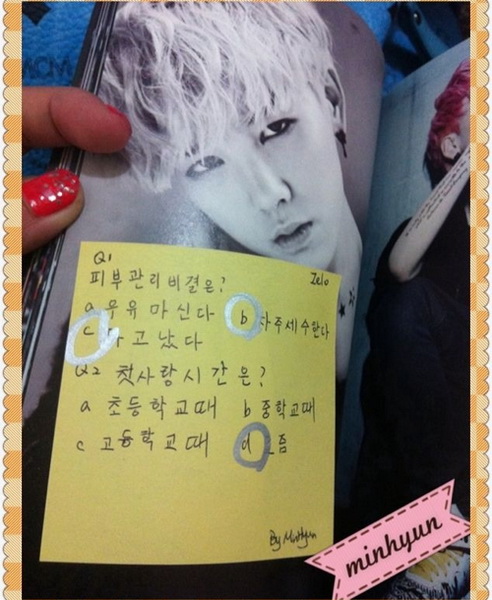 Q1
피부관리비결은? Zelo
a 우유 마신다 b 자주세수한다
c 타고났다
Q2 첫사랑시간은?
a 초등학교때 b 중학교때
c 고등학교때 d 요즘
By MinHyun
minhyun